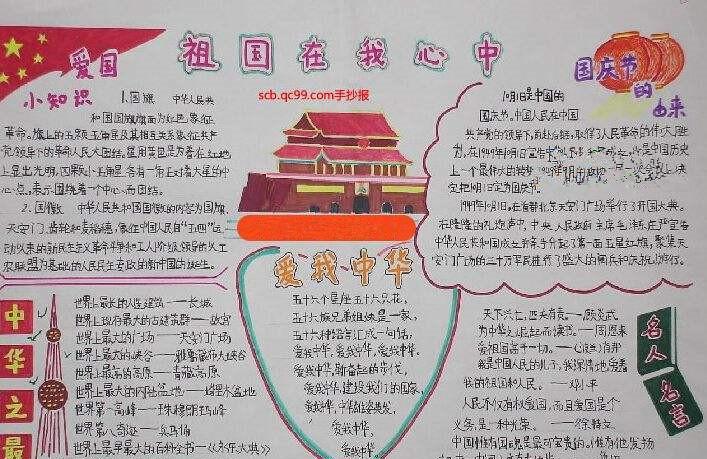 祖国在我心中
scb.qc99.com手抄报
爱国
小知识
1.国旗 中华人民共
和国国旗旗面为红色,象征
革命。旗上的五颗五角星及其相互关系象征共产
党领导下的革命人民大团结。星用黄色是为着在红地
上显出光明,四颗小五角星各有一角正对着大星的中
心点,表示围绕着一个中心而团结。
2.国徽 中华人民共和国国徽的内容为国旗、
天安门、齿轮和麦稻穗,象征中国人民自"五四"运
动以来的新民主主义革命斗争和工人阶级领导的以工
农联盟为基础的人民民主专政的新中国的诞生。
国庆节
的
由来
10月1日是中国的
国庆节。中国人民在中国
共产党的领导下前赴后继,取得了人民革命的伟大胜
定把10月1日定为国庆
1949年10月1日,在首都北京天安门广场举行了开国大典。
在隆隆的礼炮声中,中央人民政府主席毛泽东庄严宣告
中华人民共和国成立并亲手升起了第一面五星红旗。聚集天
安门广场的三十万军民进行了盛大的阅兵和庆祝游行。
中华之最
世界上最长的人造建筑——长城
世界上现存最大的古建筑群——故宫
世界上最大的广场——天安门广场
世界上最大的峡谷——雅鲁藏布大峡谷
世界上最高的高原——青藏高原
世界上最大的内陆盆地——塔里木盆地
世界第一高峰——珠穆朗玛峰
世界第八奇迹——兵马俑
世界上最早最大的百科全书——《永乐大典》
爱我中华
五十六个星座五十六只花,
五十六族兄弟姐妹是一家,
五十六种语言汇成一句话,
爱我中华,爱我中华,爱我中华。
爱我中华,
爱我中华
名人名言
天下兴亡,匹夫有责。——顾炎武
为中华之崛起而读书。——周恩来
我是中国人民的儿子,我深情地爱着
我的祖国和人民。——邓小平
人民不仅有权爱国,而且爱国是个
义务,是一种光荣。——徐特立